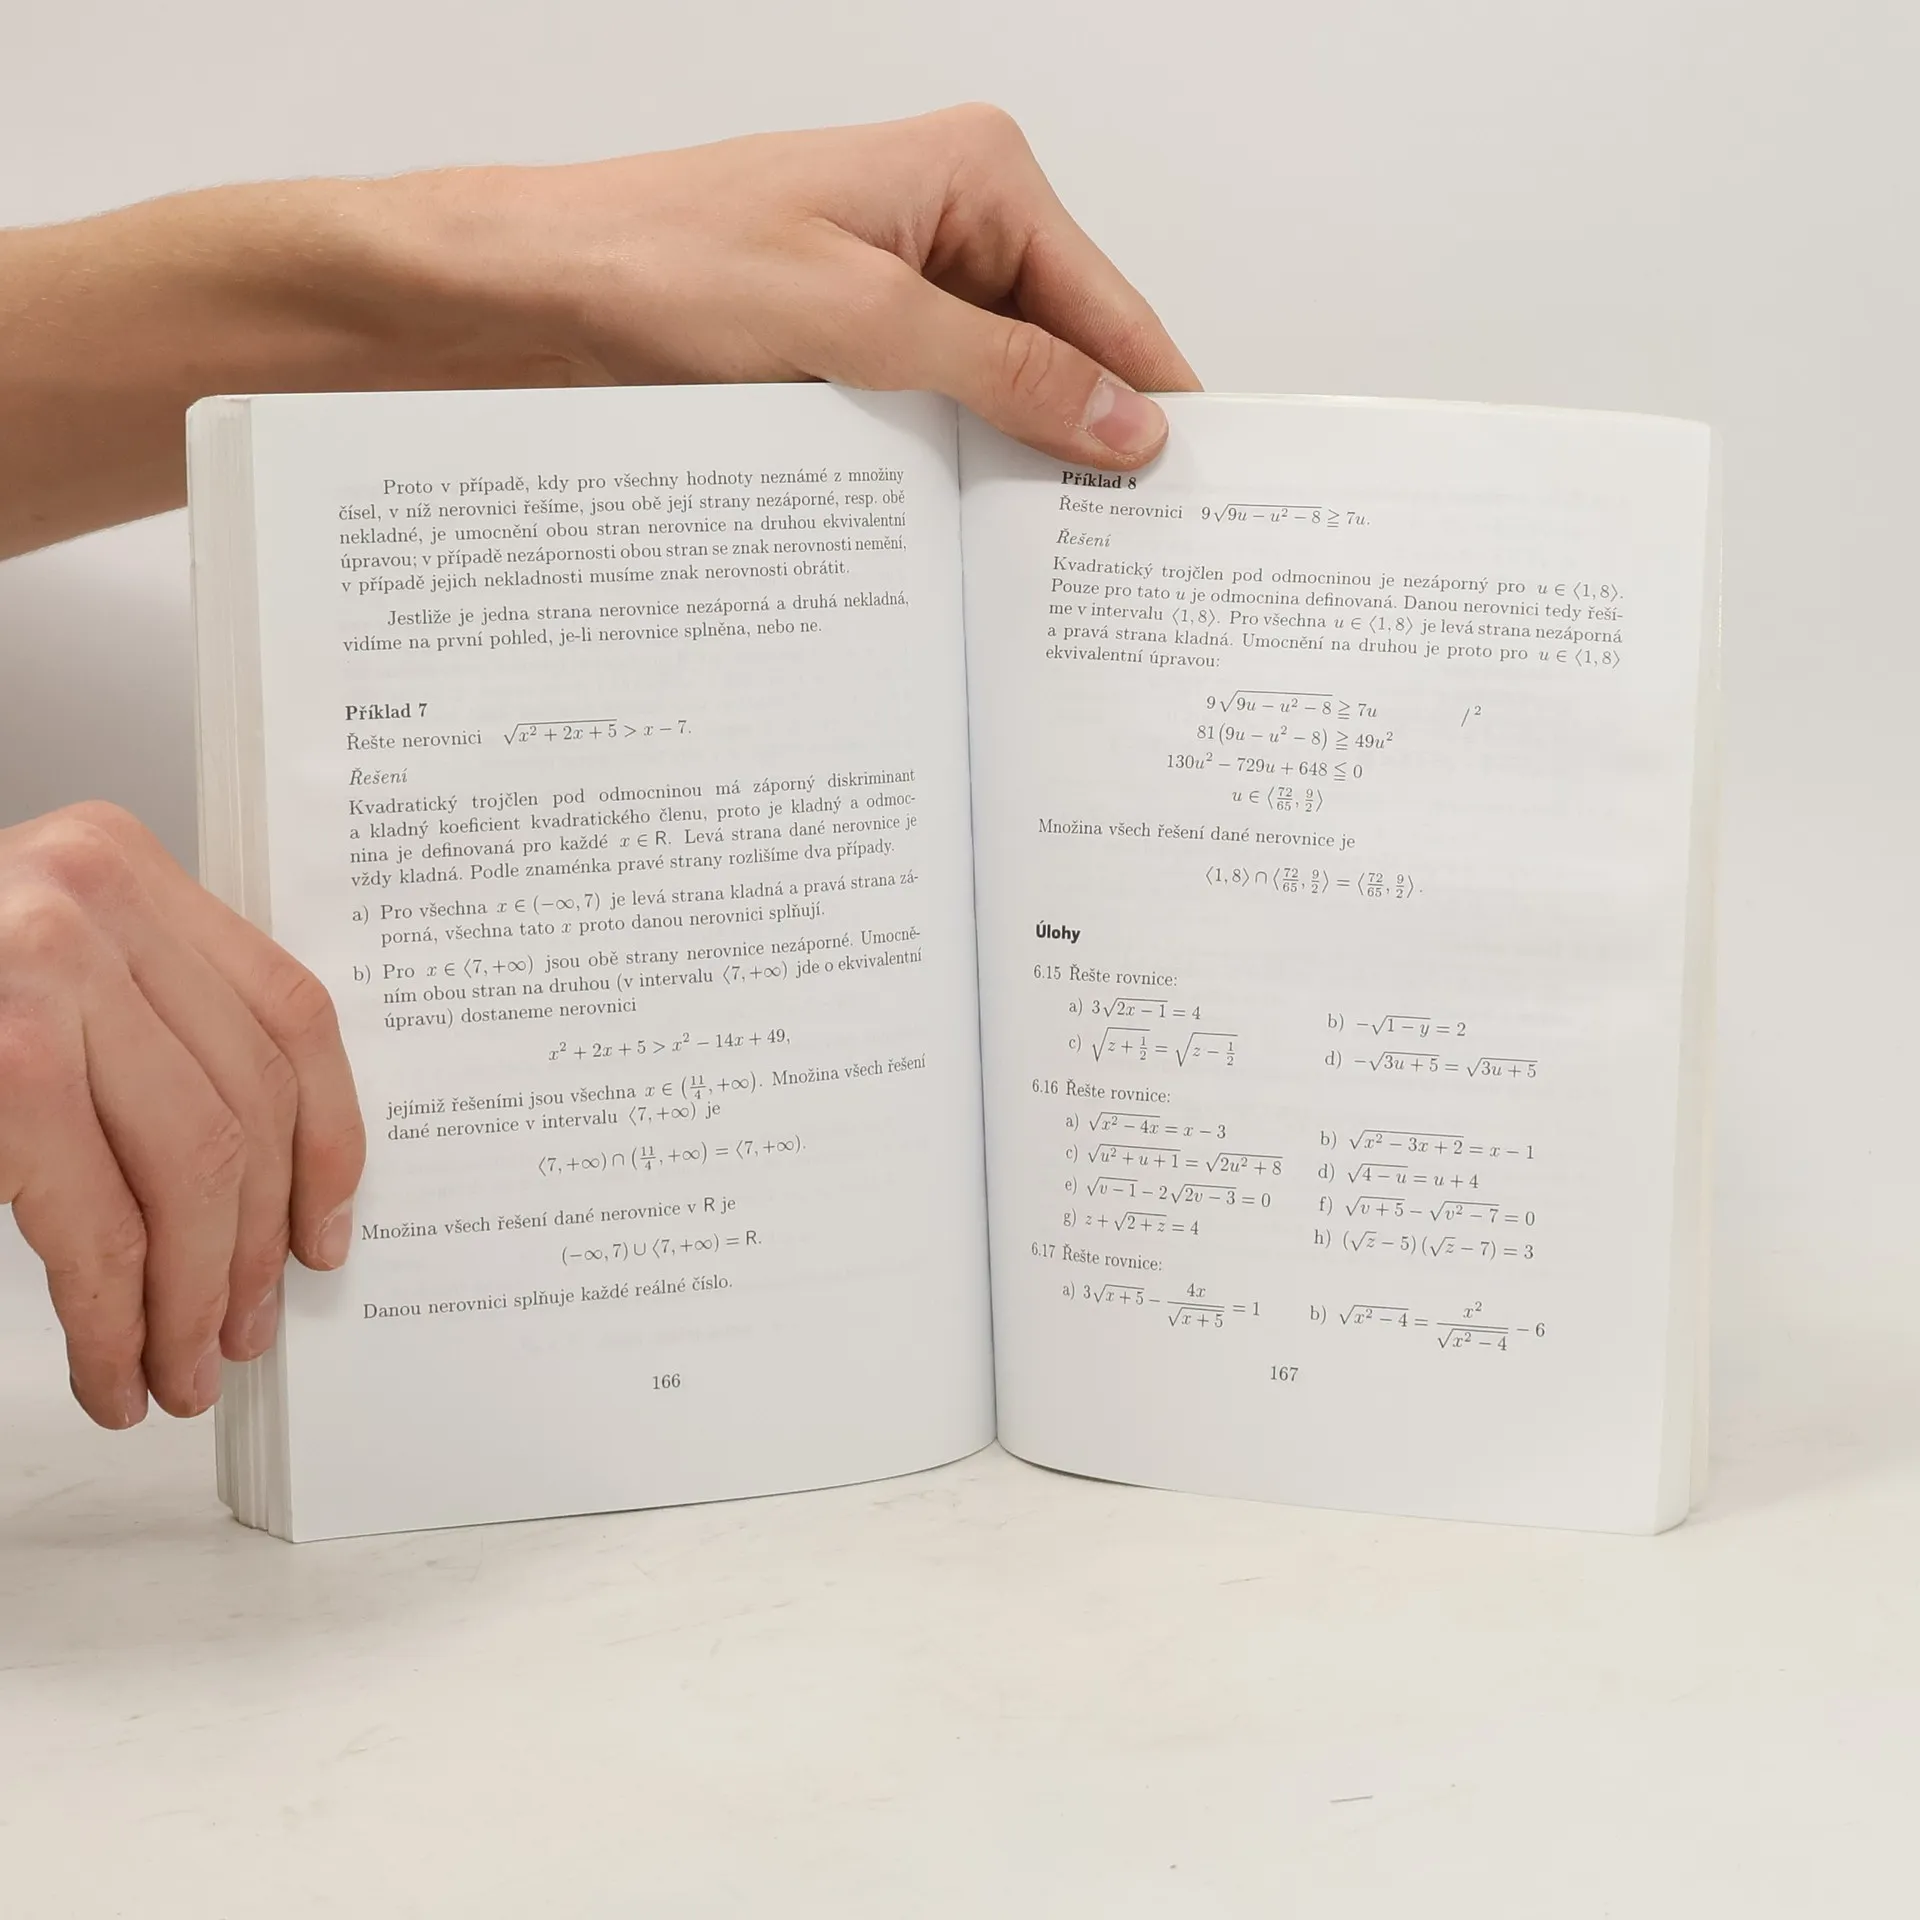 Proto v případě, kdy pro všechny hodnoty neznámé z množiny
čísel, v níž nerovnici řešíme, jsou obě její strany nezáporné, resp. obě
nekladné, je umocnění obou stran nerovnice na druhou ekvivalentní
úpravou; v případě nezápornosti obou stran se znak nerovnosti nemění,
v případě jejich nekladnosti musíme znak nerovnosti obrátit.
Jestliže je jedna strana nerovnice nezáporná a druhá nekladná,
vidíme na první pohled, je-li nerovnice splněna, nebo ne.
Příklad 7
Řešte nerovnici √(x² + 2x + 5) > x − 7.
Řešení
Kvadratický trojčlen pod odmocninou má záporný diskriminant
a kladný koeficient kvadratického členu, proto je kladný a odmoc-
nina je definovaná pro každé x ∈ R. Levá strana dané nerovnice je
vždy kladná. Podle znaménka pravé strany rozlišíme dva případy.
a) Pro všechna x ∈ (−∞, 7) je levá strana kladná a pravá strana zá-
porná, všechna tato x proto danou nerovnici splňují.
b) Pro x ∈ ⟨7, +∞) jsou obě strany nerovnice nezáporné. Umocně-
ním obou stran na druhou (v intervalu ⟨7, +∞) jde o ekvivalentní
úpravu) dostaneme nerovnici
x² + 2x + 5 > x² − 14x + 49,
jejímiž řešeními jsou všechna x ∈ (11/4, +∞). Množina všech řešení
dané nerovnice v intervalu ⟨7, +∞) je
⟨7, +∞) ∩ (11/4, +∞) = ⟨7, +∞).
Množina všech řešení dané nerovnice v R je
(−∞, 7) ∪ ⟨7, +∞) = R.
Danou nerovnici splňuje každé reálné číslo.
166
Příklad 8
Řešte nerovnici 9√(9u − u² − 8) ≧ 7u.
Řešení
Kvadratický trojčlen pod odmocninou je nezáporný pro u ∈ ⟨1, 8⟩.
Pouze pro tato u je odmocnina definovaná. Danou nerovnici tedy řeší-
me v intervalu ⟨1, 8⟩. Pro všechna u ∈ ⟨1, 8⟩ je levá strana nezáporná
a pravá strana kladná. Umocnění na druhou je proto pro u ∈ ⟨1, 8⟩
ekvivalentní úpravou:
9√(9u − u² − 8) ≧ 7u /²
81(9u − u² − 8) ≧ 49u²
130u² − 729u + 648 ≦ 0
u ∈ ⟨72/65, 9/2⟩
Množina všech řešení dané nerovnice je
⟨1, 8⟩ ∩ ⟨72/65, 9/2⟩ = ⟨72/65, 9/2⟩.
Úlohy
6.15 Řešte rovnice:
a) 3√(2x − 1) = 4 b) −√(1 − y) = 2
c) √(z + 1/2) = √(z − 1/2) d) −√(3u + 5) = √(3u + 5)
6.16 Řešte rovnice:
a) √(x² − 4x) = x − 3 b) √(x² − 3x + 2) = x − 1
c) √(u² + u + 1) = √(2u² + 8) d) √(4 − u) = u + 4
e) √(v − 1) − 2√(2v − 3) = 0 f) √(v + 5) − √(v² − 7) = 0
g) z + √(2 + z) = 4 h) (√z − 5)(√z − 7) = 3
6.17 Řešte rovnice:
a) 3√(x + 5) − 4x/√(x + 5) = 1 b) √(x² − 4) = x²/√(x² − 4) − 6
167